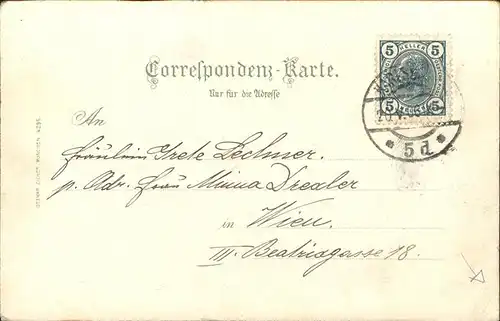 5 HELLER 5
5 5
Correspondenz-Karte.
Nur für die Adresse
5d
An
Fräulein Grete Lechner.
p. Adr. Frau Minna Drexler
in Wien.
III. Beatrixgasse 18.